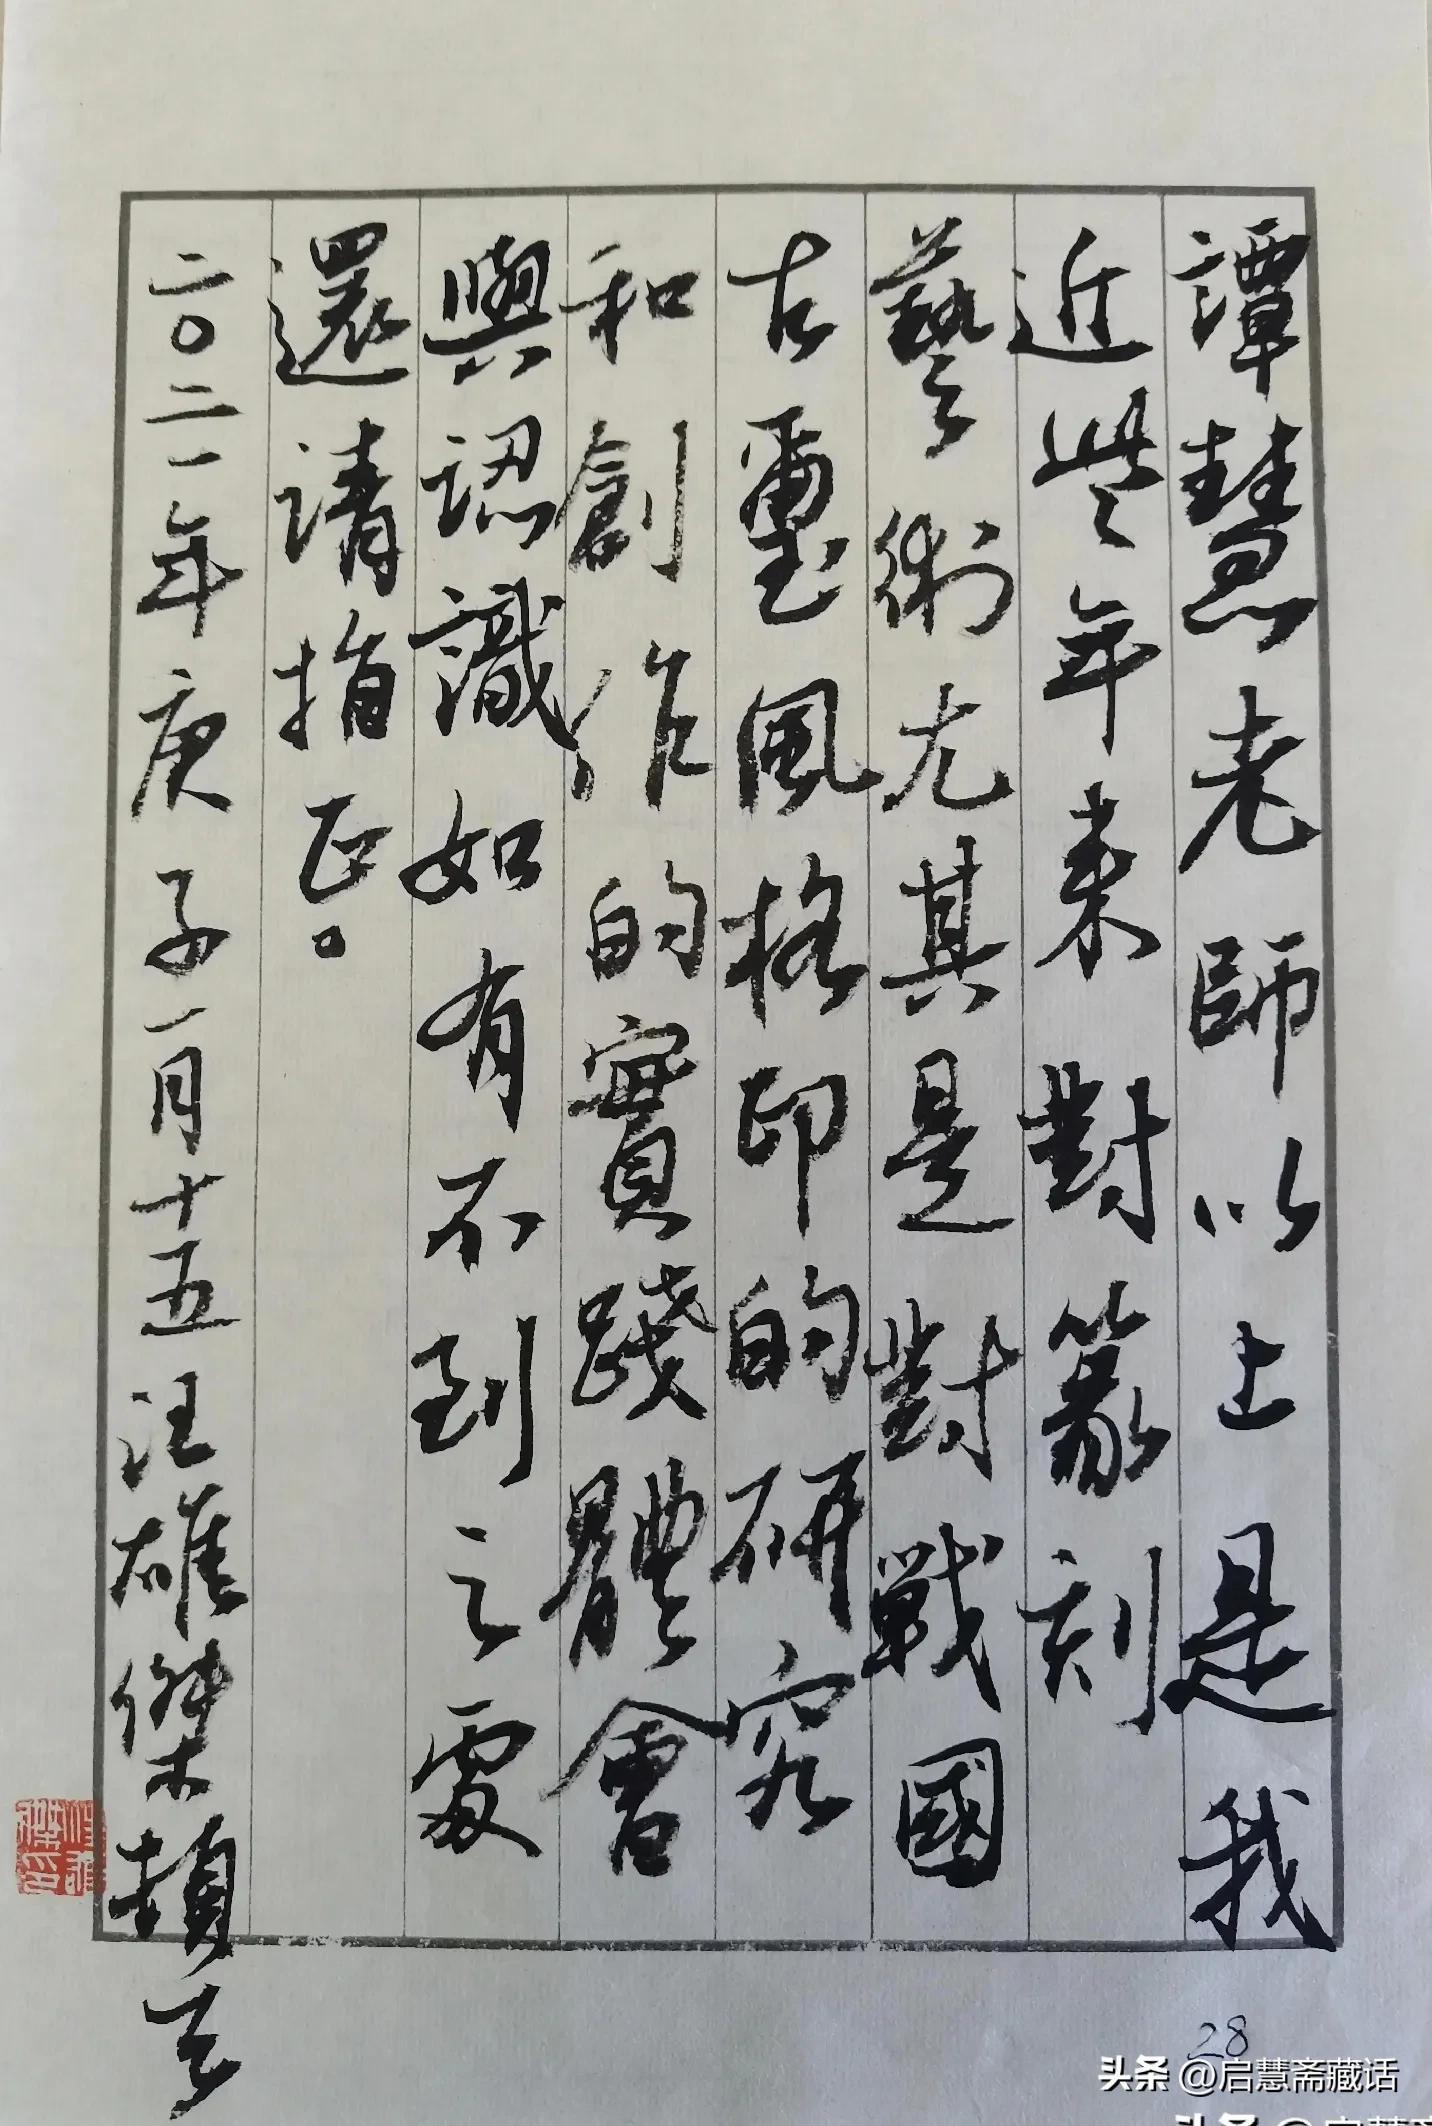 譚慧老師以上是我
近些年来對篆刻
藝術尤其是對戰國
古璽風格印的研究
和創作的實踐體會
與認識如有不到之處
還请指正。
二〇二一年庚子一月十五汪雄傑頓首
28
头条 @启慧斋藏话